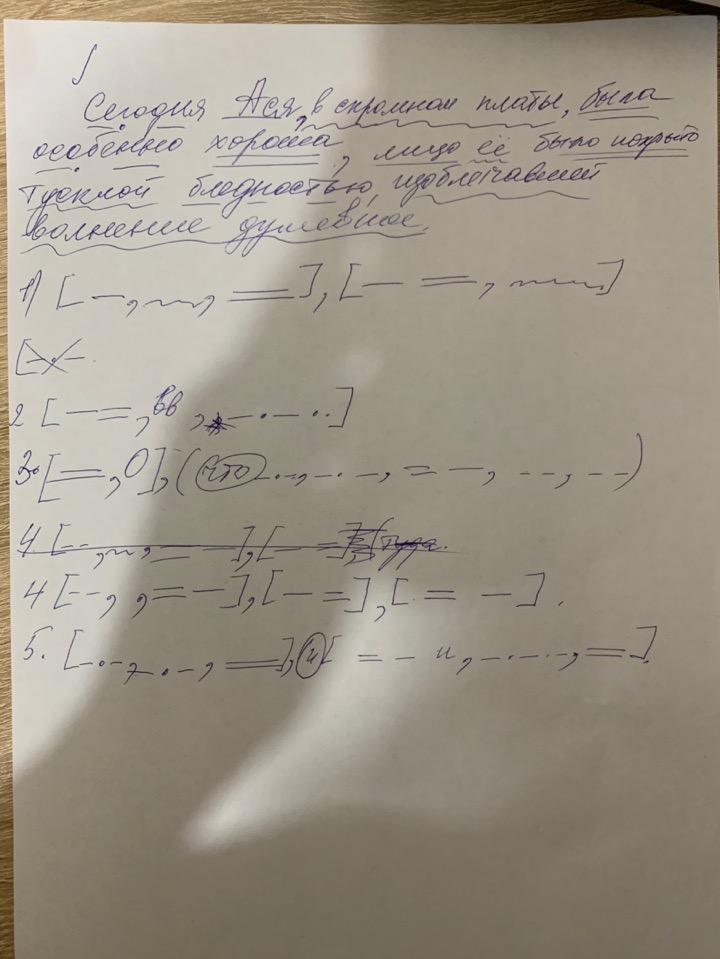 Сегодня Ася, в скромном платы, была
особенно хороша, лицо её было покрыто
тусклой бледностью, изобличавшей
волнение душевное.
1) [– –, , ==], [– ==, ]
2 [– ==, вв , –·–··]
3. [==, O], (что –··, –··, = –, – –, – –)
4 [– –, , == –], [– =], [= –].
5. [–·–, ·–, ==], и [= – и, –·–··, ==].